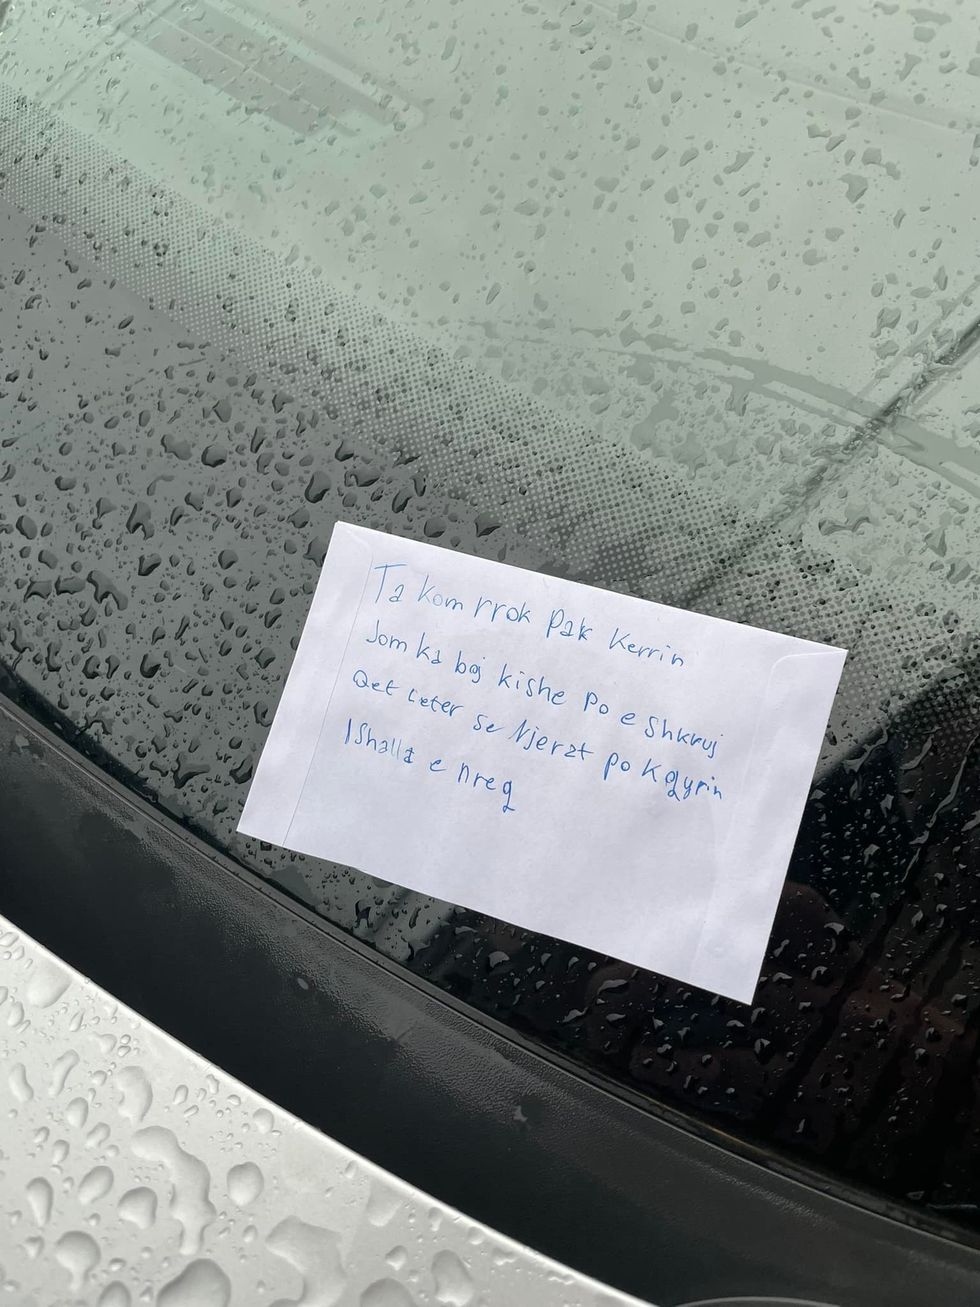 Ta kom rrok pak kerrin
Jom ka boj kishe po e shkruj
Qet leter se Njerzt po kqyrin
Ishalla e nreq